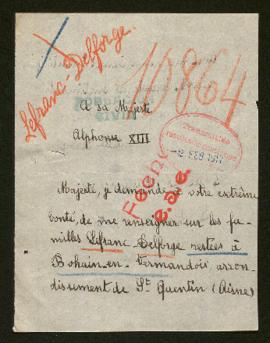 Lefranc-Delforge.
10864
A Sa Majesté
Alphonse XIII
FEB 1917
Majesté, je demande à votre extrême
bonté, de me renseigner sur les fa-
milles Lefranc-Delforge restées à
Bohain-en-Vermandois, arron-
dissement de St Quentin (Aisne)